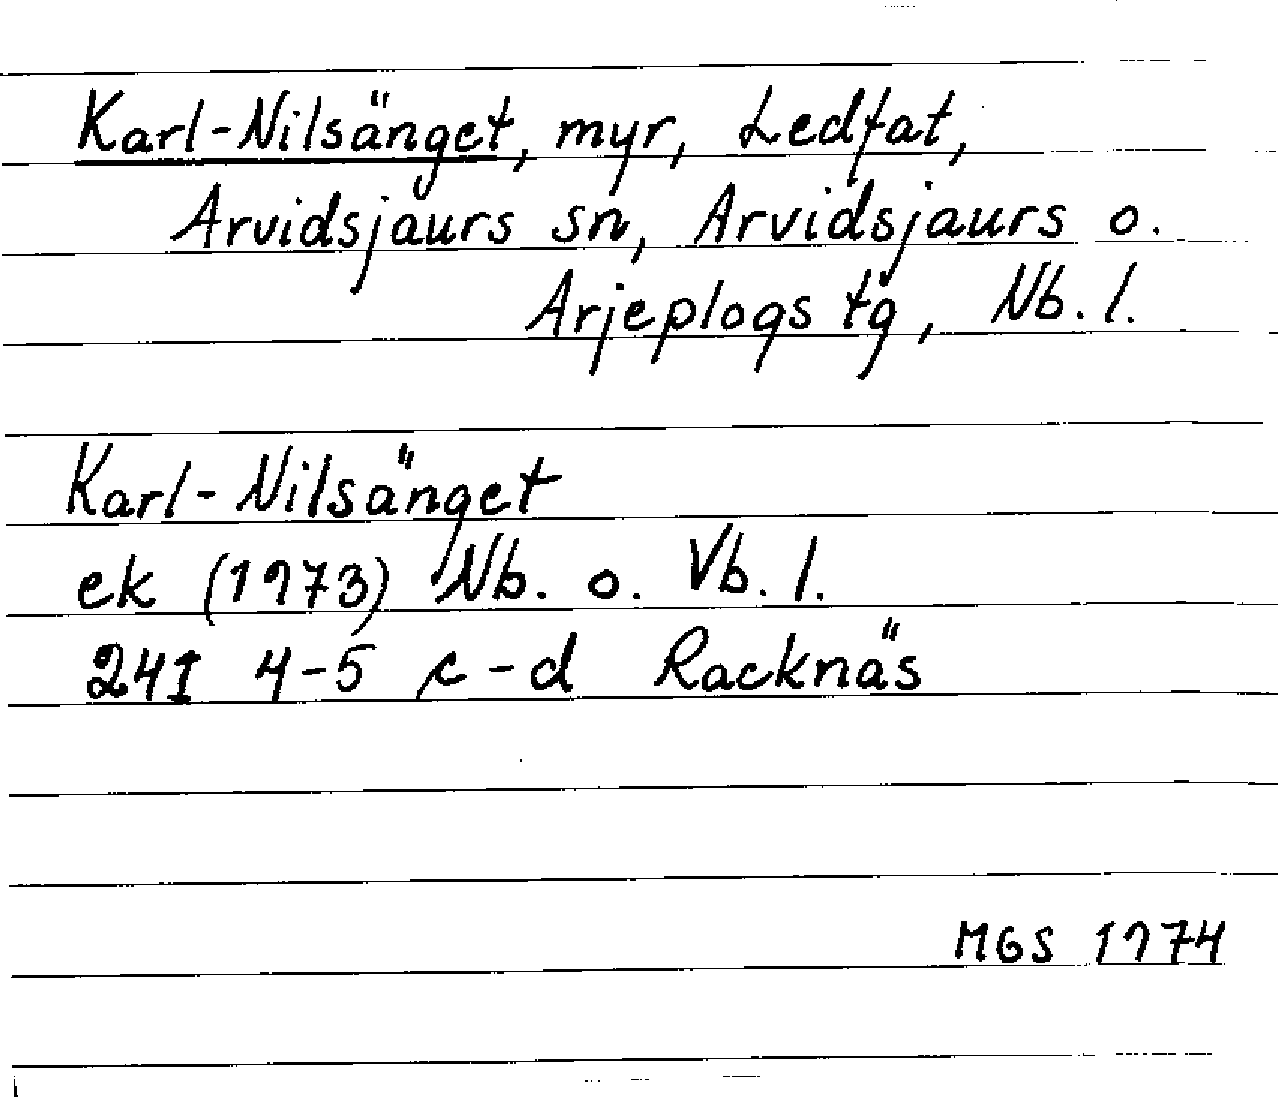 Karl-Nilsänget, myr, Ledfat,
Arvidsjaurs sn, Arvidsjaurs o.
Arjeplogs tg, Nb. l.
Karl-Nilsänget
ek (1973) Nb. o. Vb. l.
24I 4-5 c-d Racknäs
MGS 1974